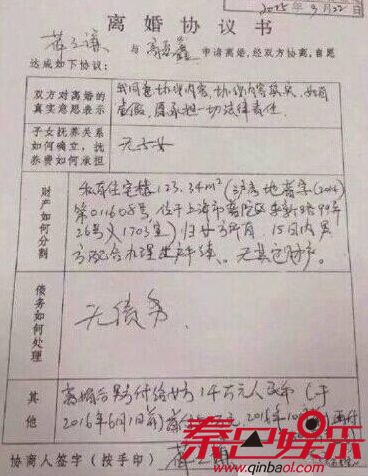 2015年9月22日
离婚协议书
与 申请离婚,经双方协商,自愿
达成如下协议:
双方对离婚的
真实意思表示
我同意协议内容,协议内容真实,如有
虚假,愿承担一切法律责任.
子女抚养关系
如何确立,抚
养费如何承担
无子女
财产如何分割
私有住宅楼123.34m²(沪房地普字(2014)
第011608号,位于上海市普陀区 99弄
26号 1703室)归女方所有 15日内男
方配合办理过户手续、无其它财产.
债务如何处理
无债务.
其他
离婚后男方付给女方1千万元人民币(于
2016年6月1日前) 2016年10月
协商人签字(按手印)
秦巴娱乐
www.qinbaol.com